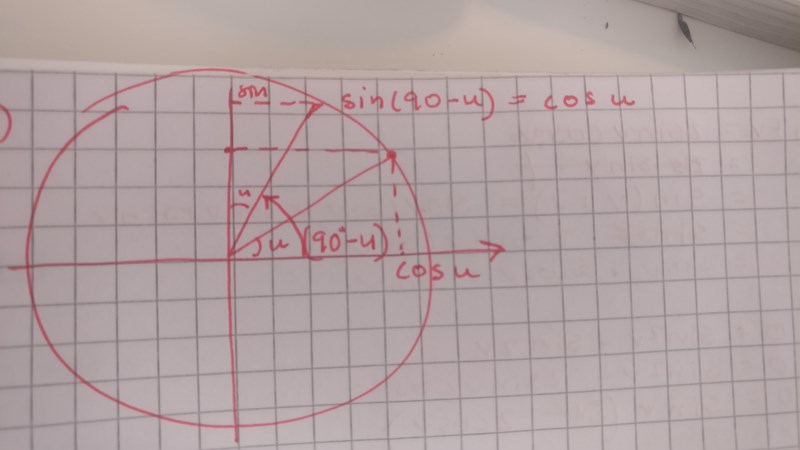 )
sin
sin(90-u) = cos u
u
u (90°-u)
cos u